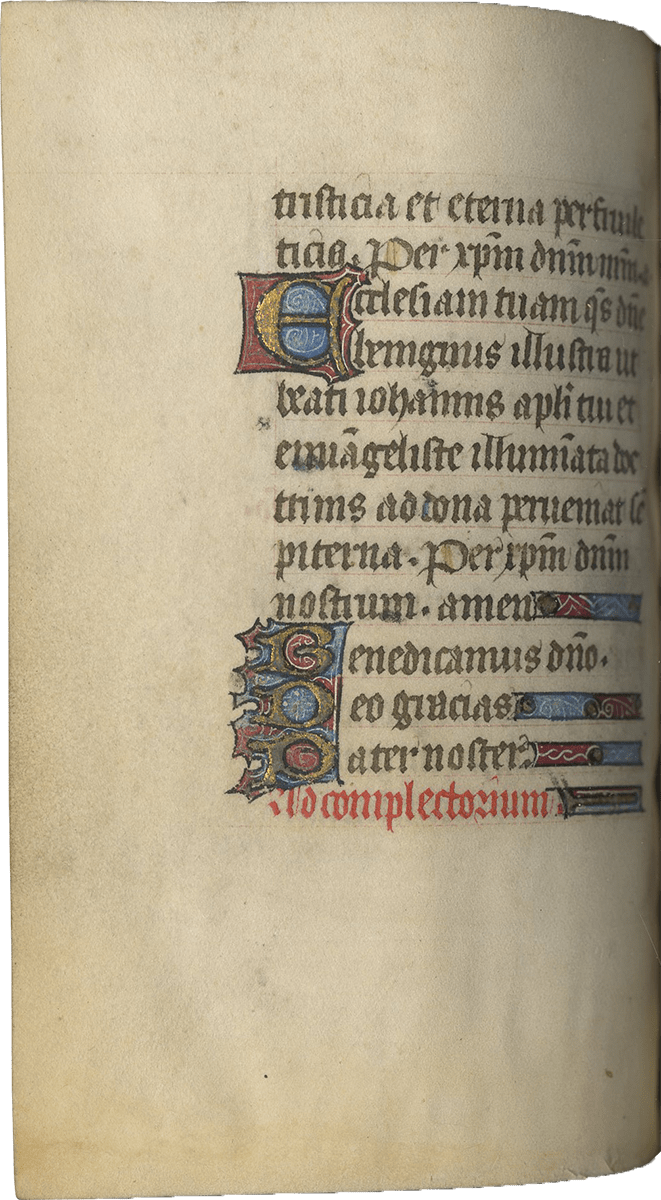 tristicia et eterna perfrui le
ticia. Per xp̄m dn̄m nr̄m.
Ecclesiam tuam qs̄ dn̄e
benignus illustra ut
beati iohannis apl̄i tui et
euuāgeliste illumīata doc
trinis ad dona perueniat sē
piterna. Per xp̄m dn̄m
nostrum. amen
Benedicamus dn̄o.
Deo gracias
Pater noster
Ad complectorium